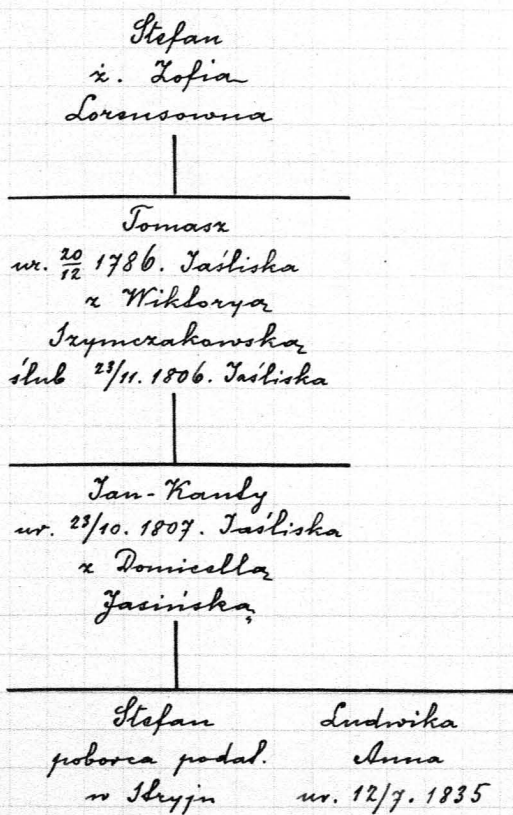 Stefan
ż. Zofia
Lorensowna
Tomasz
ur. 20/12 1786. Jaśliska
z Wiktoryą
Szymczakowską
ślub 23/11. 1806. Jaśliska
Jan-Kanty
ur. 23/10. 1807. Jaśliska
z Domicellą
Jasińską
Stefan
poborca podat.
w Stryju
Ludwika
Anna
ur. 12/7. 1835